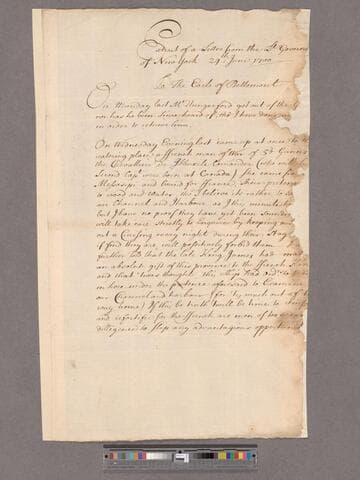 Extract of a Letter from the Lt Governor
of New York 24th June 1700
To The Earle of Bellemont
On Monday last Mr Hungerford got out of the
has he been since heard of, tho I have done
in order to retrieve him
On Wednesday Evening last came up at once to
watering place a ffrench man of Warr of 50 Gunns
the Chevallier De Iberville Comander (who with his
Second Capt were born at Canada) She came from
Mesasipi and bound for ffrance, Their pretence
to wood and water, tho I beleive it rather to
our Channel and Harbour, as I they immediately
but I have no proof they have yet been Sounding
will take care strictly to enquire by keeping
out a Cruising every night during their Stay
I find they are, will positively forbid them
further told that the late King James had made
an absolute gift of this province to the ffrench
and that twas thought this Ship had orders to
in here under the pretence aforesaid to Examine
our Channel and harbour (for tis much out of
way home) If this be truth twill be time to
and ffortifie for the ffrench are men of too
diligence to slip any advantagious opportunity